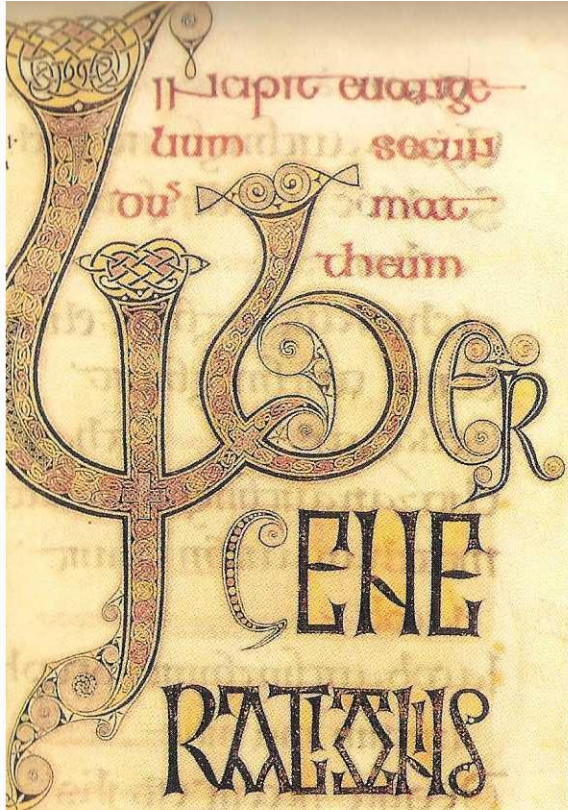 Incipit euange
lium secun
duˢ mat
theum
Liber
GENE
RATIONIS